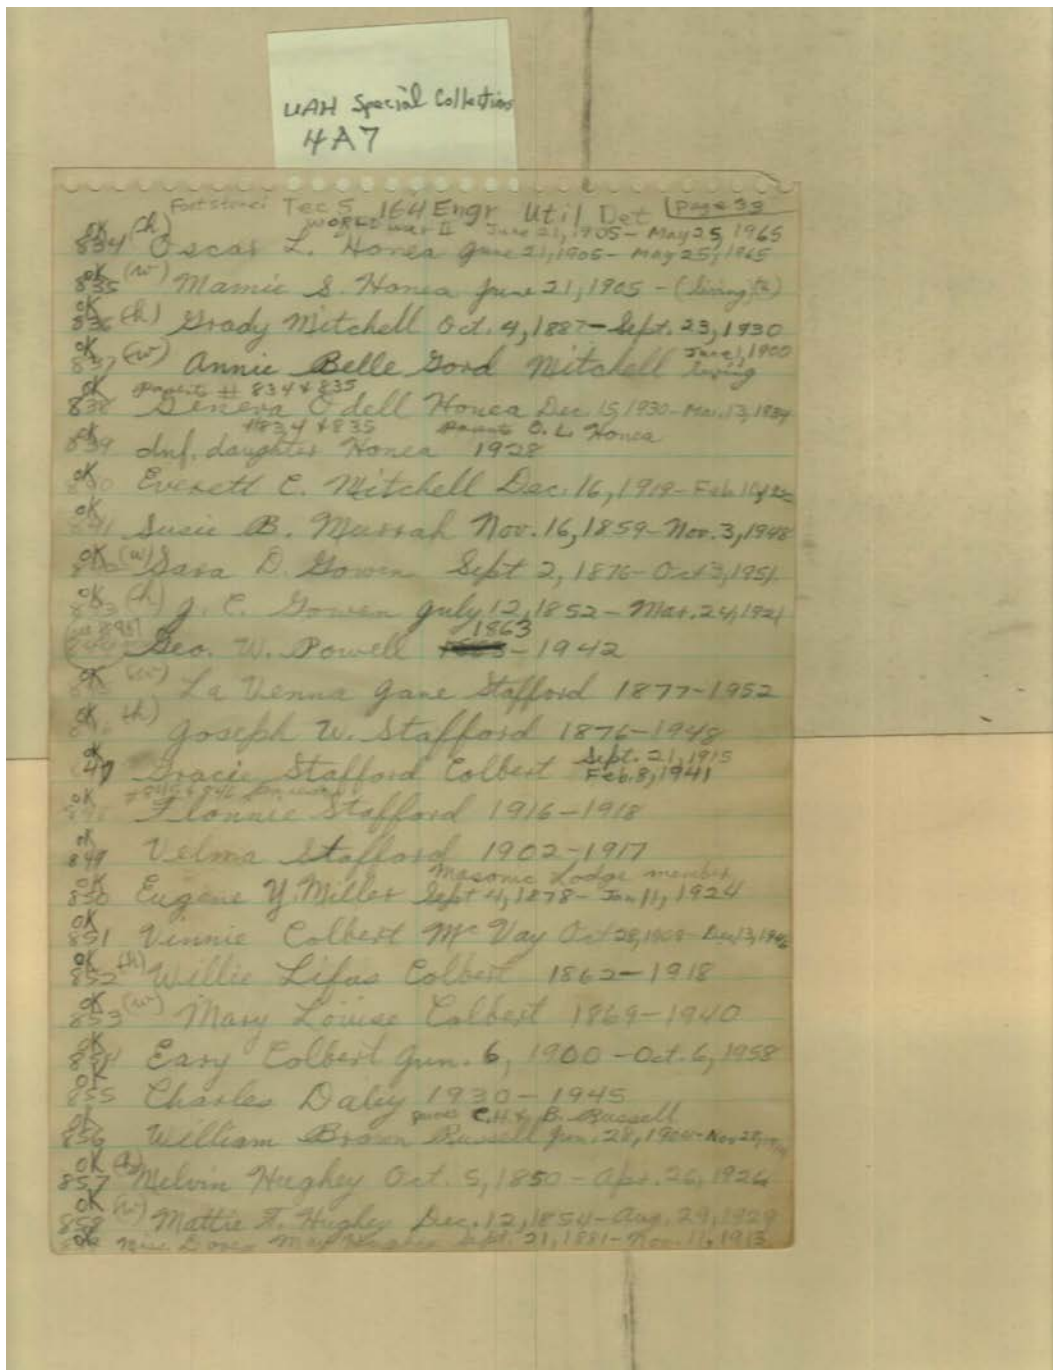 UAH Special Collections
4A7
Footstone: Tec 5 164 Engr Util Det page 33
World War II June 21, 1905 - May 25, 1965
OK (h)
834 Oscar L. Honea June 21, 1905 - May 25, 1965
OK
835 (w) Mamie S. Honea June 21, 1905 - (living)
OK
836 (h) Grady Mitchell Oct. 4, 1887 - Sept. 23, 1930
OK June 1, 1900
837 (w) Annie Belle Mitchell living
OK Parents # 834 & 835
838 Geneva Odell Honea Dec. 15, 1930 - Mar. 13, 1934
#834 & 835 Parents O. L. Honea
OK
839 Inf. daughter Honea 1928
OK
Everett C. Mitchell Dec. 16, 1919 - Feb.
OK
Susie B. Murrah Nov. 16, 1859 - Nov. 3, 1948
OK
(w) Sara D. Gowen Sept 2, 1876 - Oct 3, 1951
OK
(h) J. C. Gowen July 12, 1852 - Mar. 24, 1921
1863
844 Geo. W. Powell - 1942
OK
(w) La Venna Jane Stafford 1877-1952
OK (h)
Joseph W. Stafford 1876-1948
OK Sept. 21, 1915
47 Gracie Stafford Colbert Feb. 8, 1941
OK #845 & 846
Flonnie Stafford 1916-1918
OK
849 Velma Stafford 1902-1917
Masonic Lodge member
OK
850 Eugene Y. Miller Sept 4, 1878 - Jan 11, 1924
OK
851 Vinnie Colbert McVay Oct 28, - Dec 13,
OK (h)
852 Willie Lifas Colbert 1862-1918
OK (w)
853 Mary Louise Colbert 1869-1940
OK
854 Easy Colbert Jun. 6, 1900 - Oct. 6, 1958
OK
855 Charles Daley 1930-1945
OK C.H. & B. Russell
856 William Brown Russell Jun. 28, - Nov
OK (h)
857 Melvin Hughey Oct. 5, 1850 - Apr. 26, 1926
OK (w)
858 Mattie F. Hughey Dec. 12, 1854 - Aug. 29, 1929
OK Miss May Hughey Sept. 21, 1881 - Nov. 11, 1913